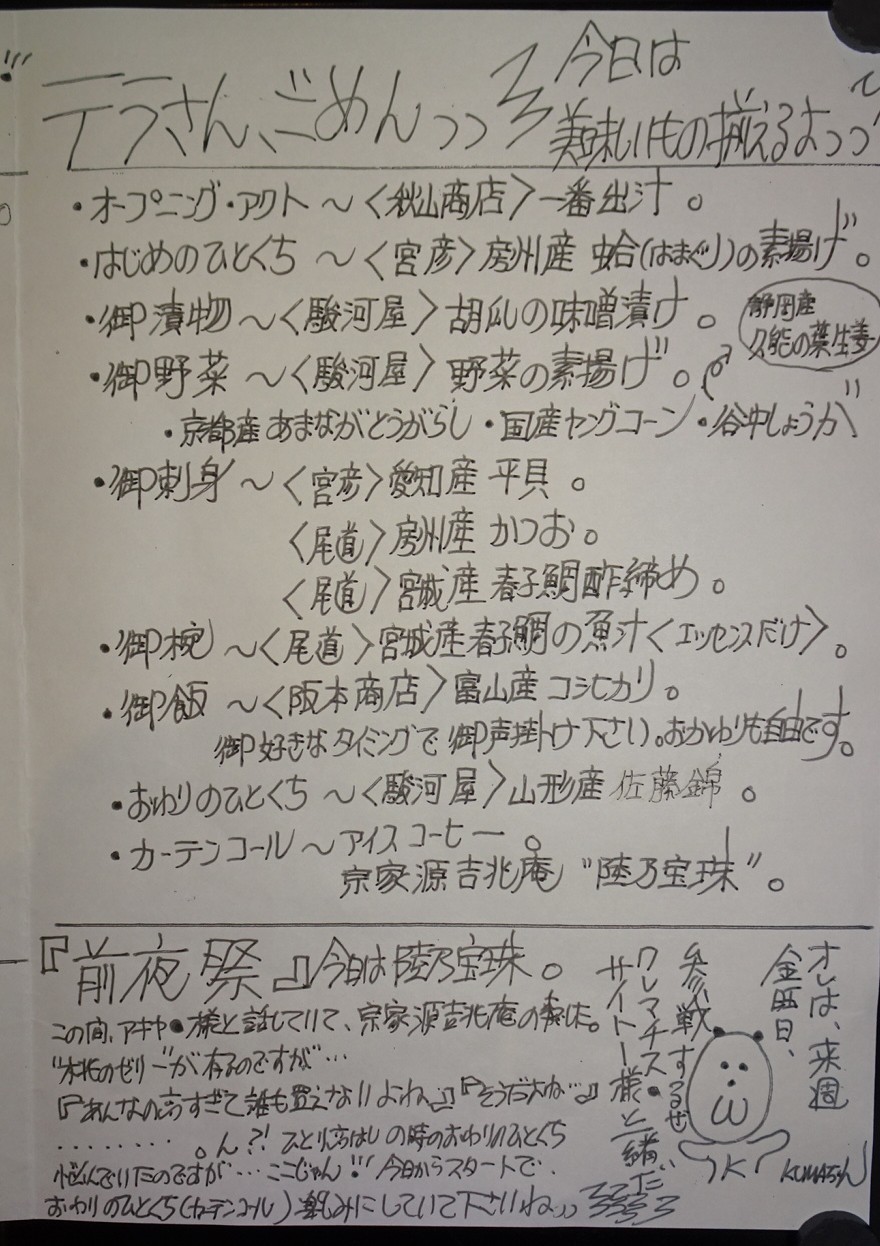 テラさん、ごめんっっ
今日は
美味しいもの揃えるよっっ
・オープニング・アクト ～〈秋山商店〉一番出汁。
・はじめのひとくち ～〈宮彦〉房州産 蛤(はまぐり)の素揚げ。
・御漬物 ～〈駿河屋〉胡瓜の味噌漬け。
静岡産
久能の葉生姜
・御野菜 ～〈駿河屋〉野菜の素揚げ。
・京都産あまながとうがらし ・国産ヤングコーン ・谷中しょうが
・御刺身 ～〈宮彦〉愛知産 平貝。
〈尾道〉房州産 かつお。
〈尾道〉宮城産 春子鯛酢締め。
・御椀 ～〈尾道〉宮城産春子鯛の魚汁〈エッセンスだけ〉。
・御飯 ～〈阪本商店〉富山産 コシヒカリ。
御好きなタイミングで御声掛け下さい。おかわりも自由です。
・おわりのひとくち ～〈駿河屋〉山形産 佐藤錦。
・カーテンコール ～ アイスコーヒー。
宗家源吉兆庵 “陸乃宝珠”。
『前夜祭』今日は陸乃宝珠。
この間、アキヤ 様と話していて、宗家源吉兆庵の
“桃のゼリー”が有るのですが…
『あんなの高すぎて誰も買えないよね。』『そうだよね…』
………。ん？! ひとり の時のおわりのひとくち
悩んでいたのですが…ここじゃん!!! 今日からスタートで、
おわりのひとくち(カーテンコール)楽しみにしていて下さいねっっ
オレは、来週
金曜日、
参戦するぜ
クレマチス・
サイトー様と一緒だ
KUMAさん